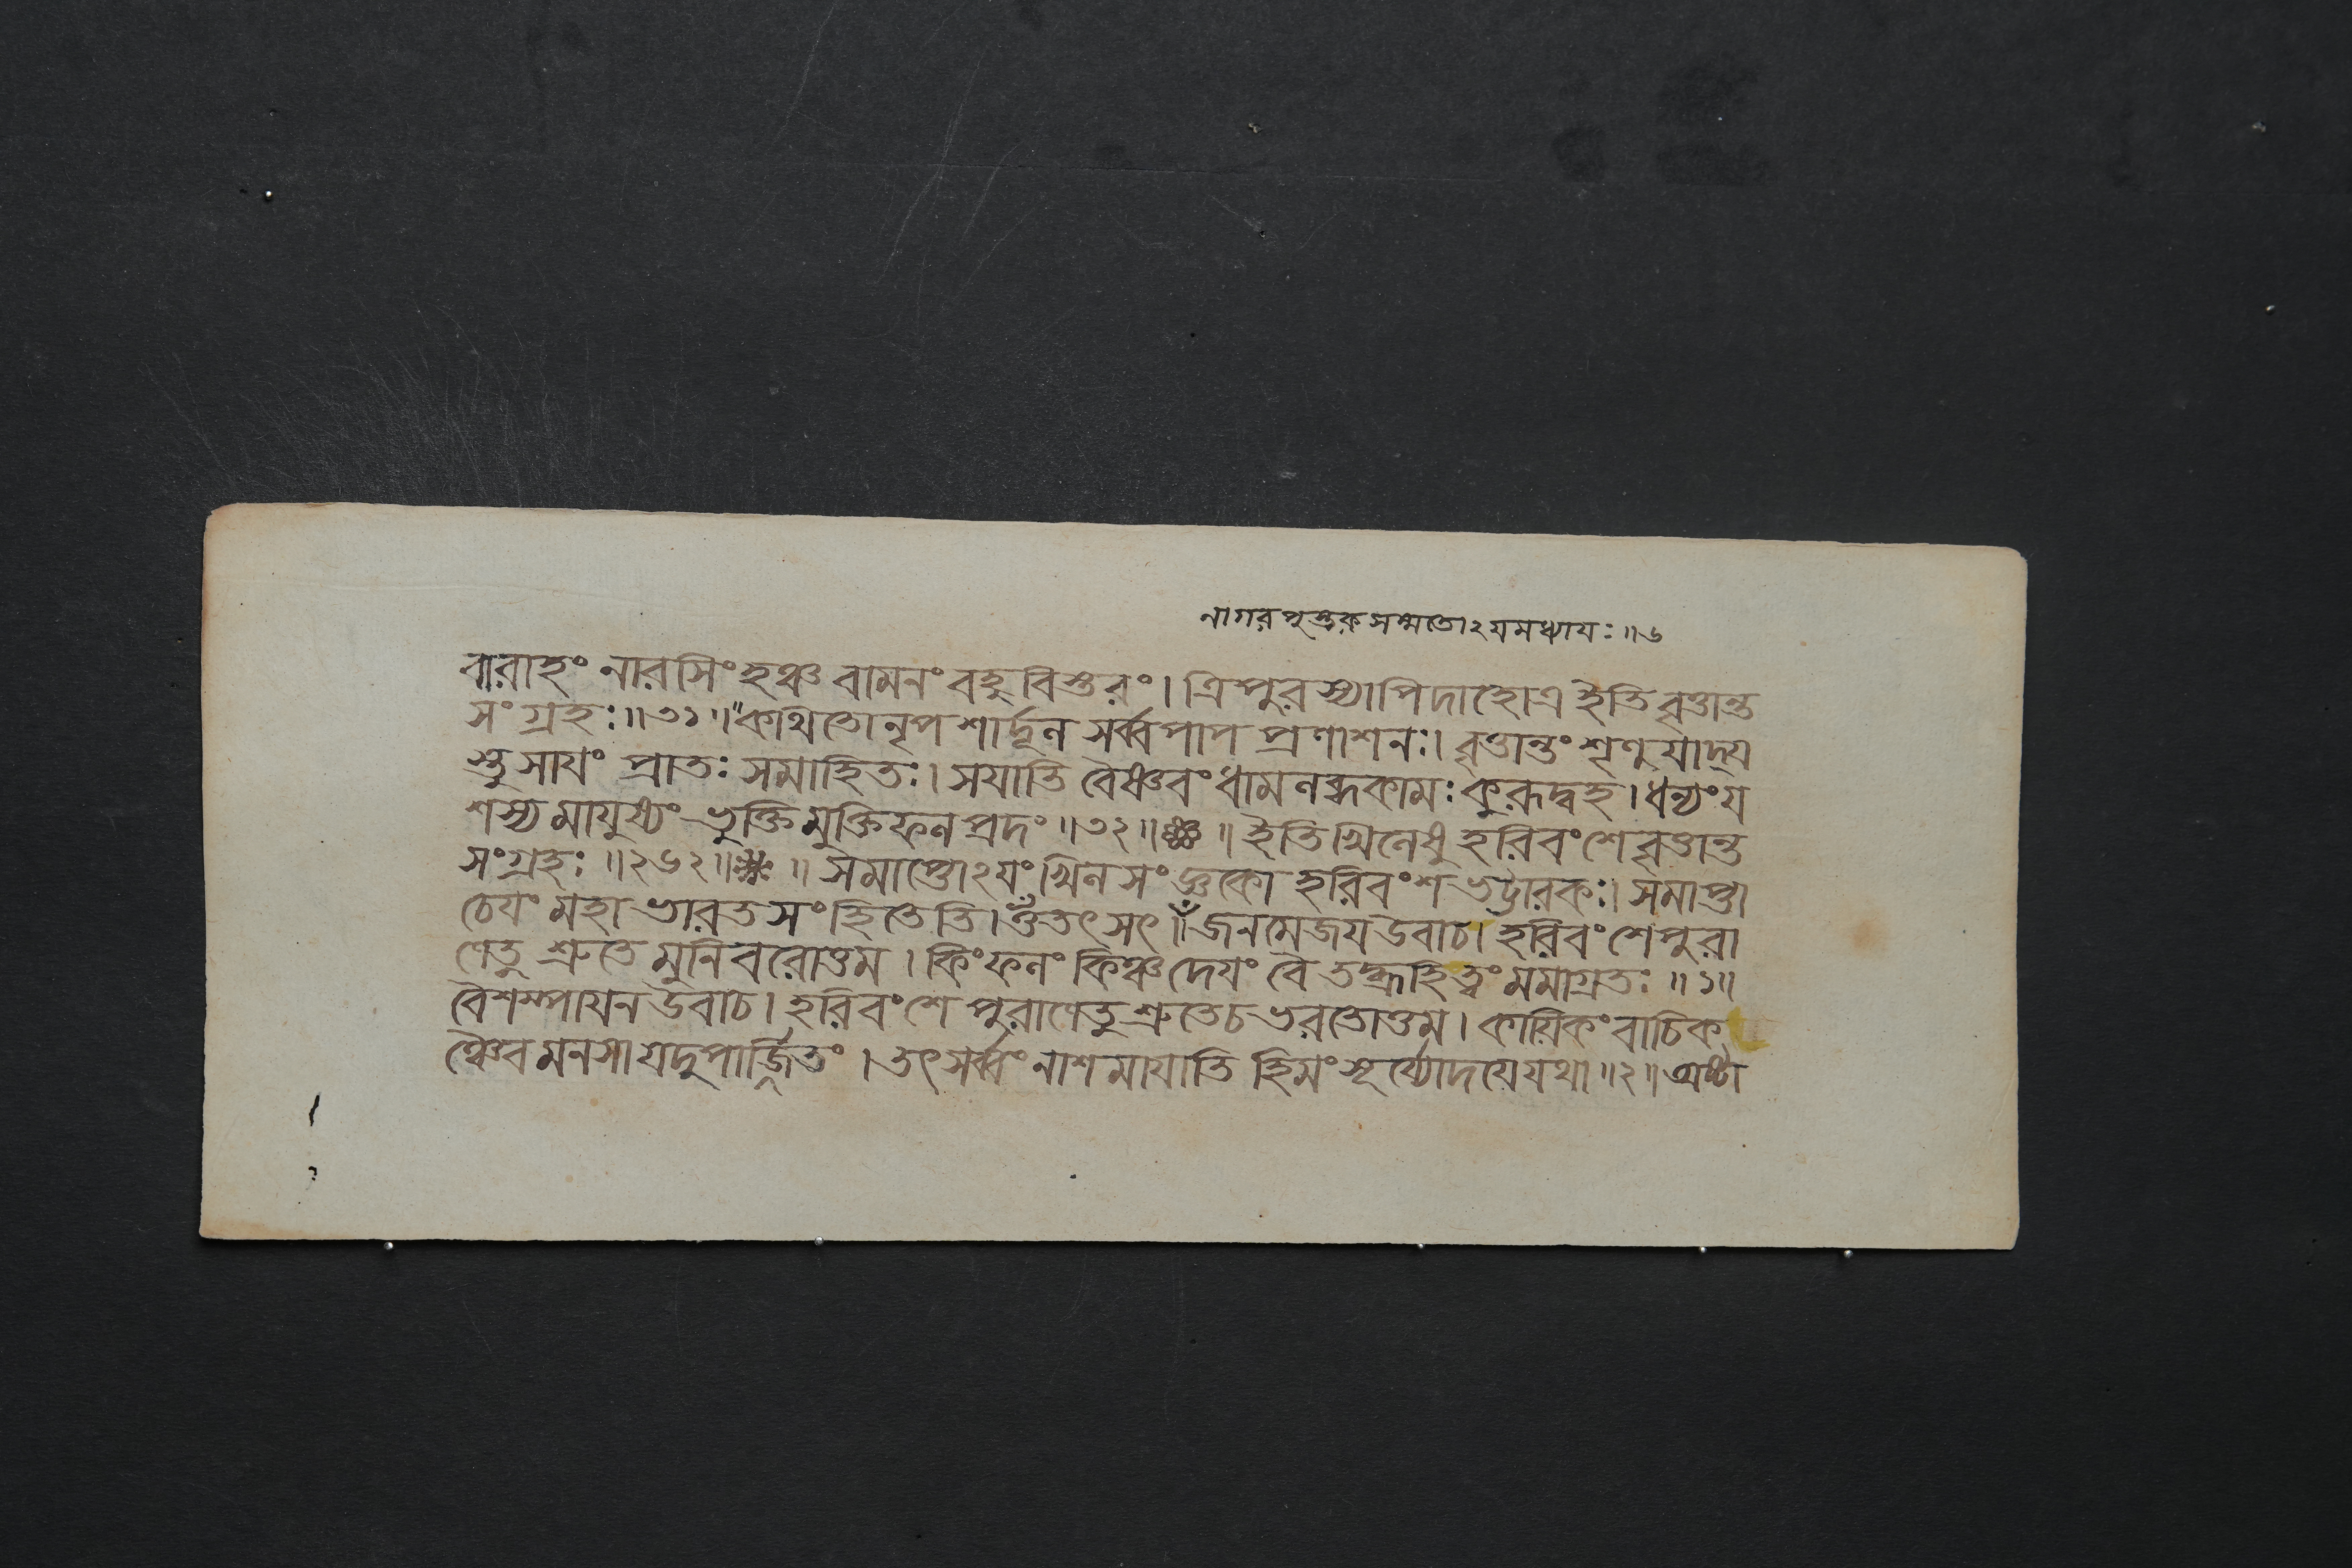 নাগরপুস্তকসম্মতোঽযমধ্যাযঃ॥৬
বারাহং নারসিংহঞ্চ বামনং বহুবিস্তরং। ত্রিপুরস্যাপিদাহোএ ইতিবৃত্তান্ত
সংগ্রহঃ॥৩১॥কথিতোনৃপশার্দূল সর্ব্বপাপ প্রণাশনঃ। বৃত্তান্তং শৃণুযাদ্য
স্তু সাযং প্রাতঃ সমাহিতঃ। সযাতি বৈষ্ণবং ধামলব্ধকামঃ কুরূদ্বহ। ধন্যংয
শস্যমাযুষ্যং ভুক্তিমুক্তিফলপ্রদং॥৩২॥ ॥ ইতিখিলেষু হরিবংশে বৃত্তান্ত
সংগ্রহঃ॥২৬২॥ ॥ সমাপ্তোঽযং খিলসংজ্ঞকো হরিবংশভট্টারকঃ। সমাপ্তা
চেযং মহাভারতসংহিতেতি। ওঁতৎসৎ॥ জনমেজযউবাচ। হরিবংশেপুরা
ণেতু শ্রুতে মুনিবরোত্তম। কিংফলং কিঞ্চদেযং বৈ তদ্ব্রূহিত্বং মমাগ্রতঃ॥১॥
বৈশম্পাযনউবাচ। হরিবংশে পুরাণেতুশ্রুতেচভরতোত্তম। কাযিকংবাচিক
ঞ্চৈবমনসাযদুপার্জ্জিতং। তৎসর্ব্বংনাশমাযাতি হিমংসূর্য্যোদযেযথা॥২॥অষ্টা